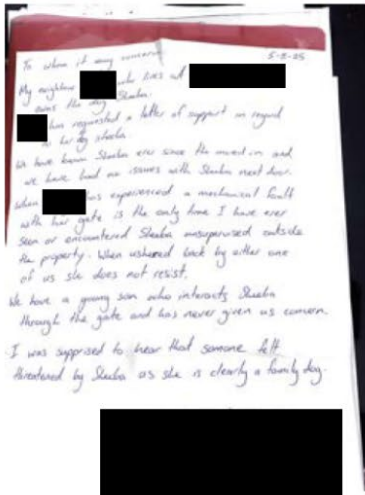 To whom it may concern
5-2-25
My neighbour who lives at
owns the dog Sheeba.
has requested a letter of support in regard
to her dog sheeba.
We have known Sheeba ever since she moved in and
we have had no issues with Sheeba next door.
When has experienced a mechanical fault
with her gate is the only time I have ever
seen or encountered Sheeba unsupervised outside
the property. When ushered back by either one
of us she does not resist.
We have a young son who interacts Sheeba
through the gate and has never given us concern.
I was supprised to hear that someone felt
threatened by Sheeba as she is clearly a family dog.